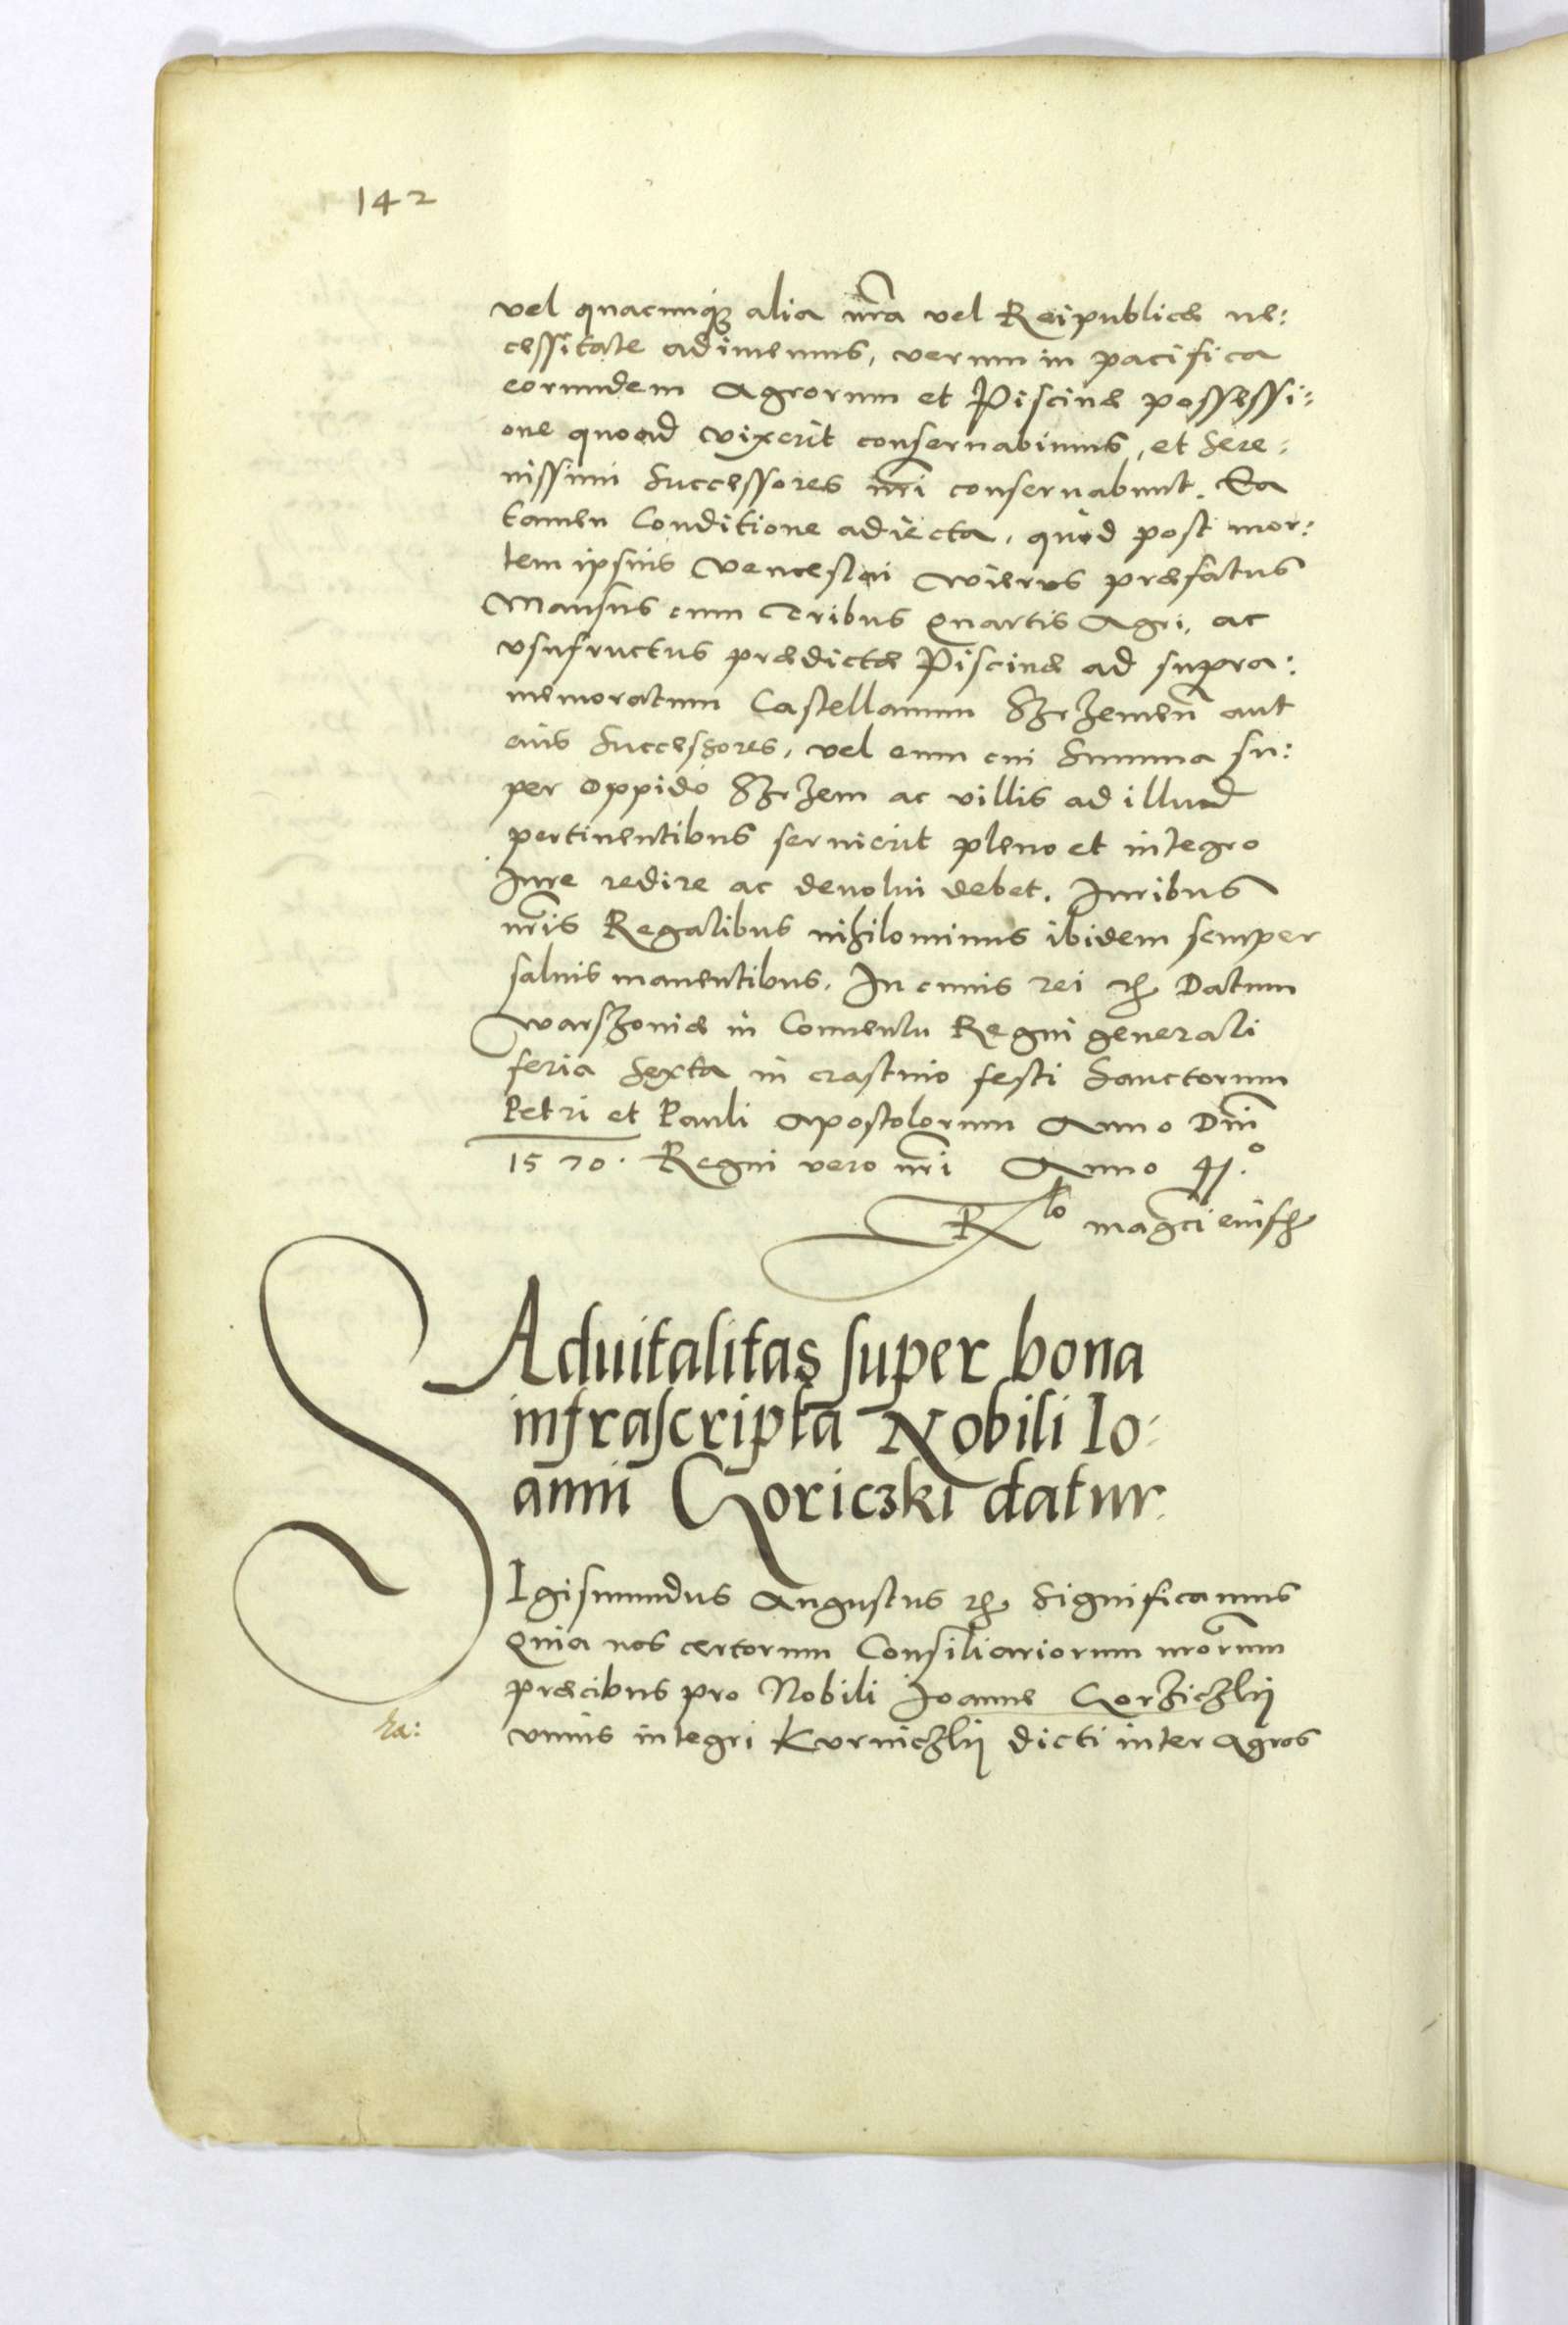 142
vel quacunq3 alia nr̃a vel Reipublicæ ne:
cessitate adimemus, verum in pacifica
eorundem Agrorum et Piscinæ possessi:
one quoad vixerit conseruabimus, et Sere:
nissimi Successores nr̃i conseruabunt. Ea
tamen Conditione adiecta, quòd post mor:
tem ipsius Venceslai præfatus
Mansus cum Tribus Quartis Agri, ac
vsufructus prædictæ Piscinæ ad supra:
memoratum Castellanum Szrzemeñ aut
eius Successores, vel eum cui Summa su:
per Oppido Szrzem ac villis ad illud
pertinentibus seruierit pleno et integro
Iure redire ac deuolui debet. Iuribus
nr̃is Regalibus nihilominus ibidem semper
saluis manentibus. In cuius rei etc. Datum
Warszouiæ in Conuentu Regni generali
feria Sexta in crastino festi Sanctorum
Petri et Pauli Apostolorum Anno Dñi
1570. Regni vero nr̃i Anno 41.º
Rlo mag̃ci
Aduitalitas super bona
infrascripta Nobili Io:
anni Goriczki datur.
SIgismundus Augustus etc. Significamus
Quia nos certorum Consiliariorum nr̃orum
præcibus pro Nobili Joanne Gorziczkij
vnius integri Kurniczkij dicti inter Agros
ha: